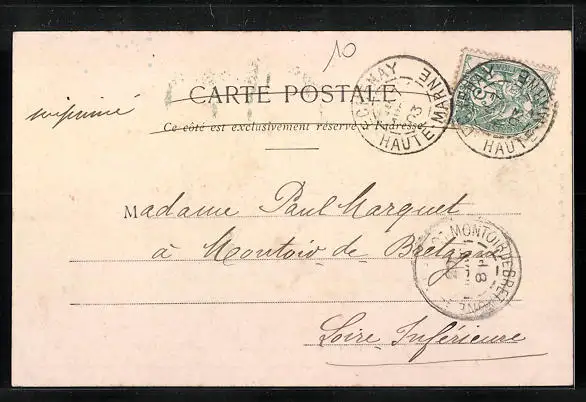 10
CARTE POSTALE
imprimé
Ce côté est exclusivement réservé à l'adresse
HAUTE MARNE
03
5
HAUTE MARNE
Madame Paul Marquet
à Montoir de Bretagne
MONTOIR-DE-BRETAGNE
Loire Inférieure